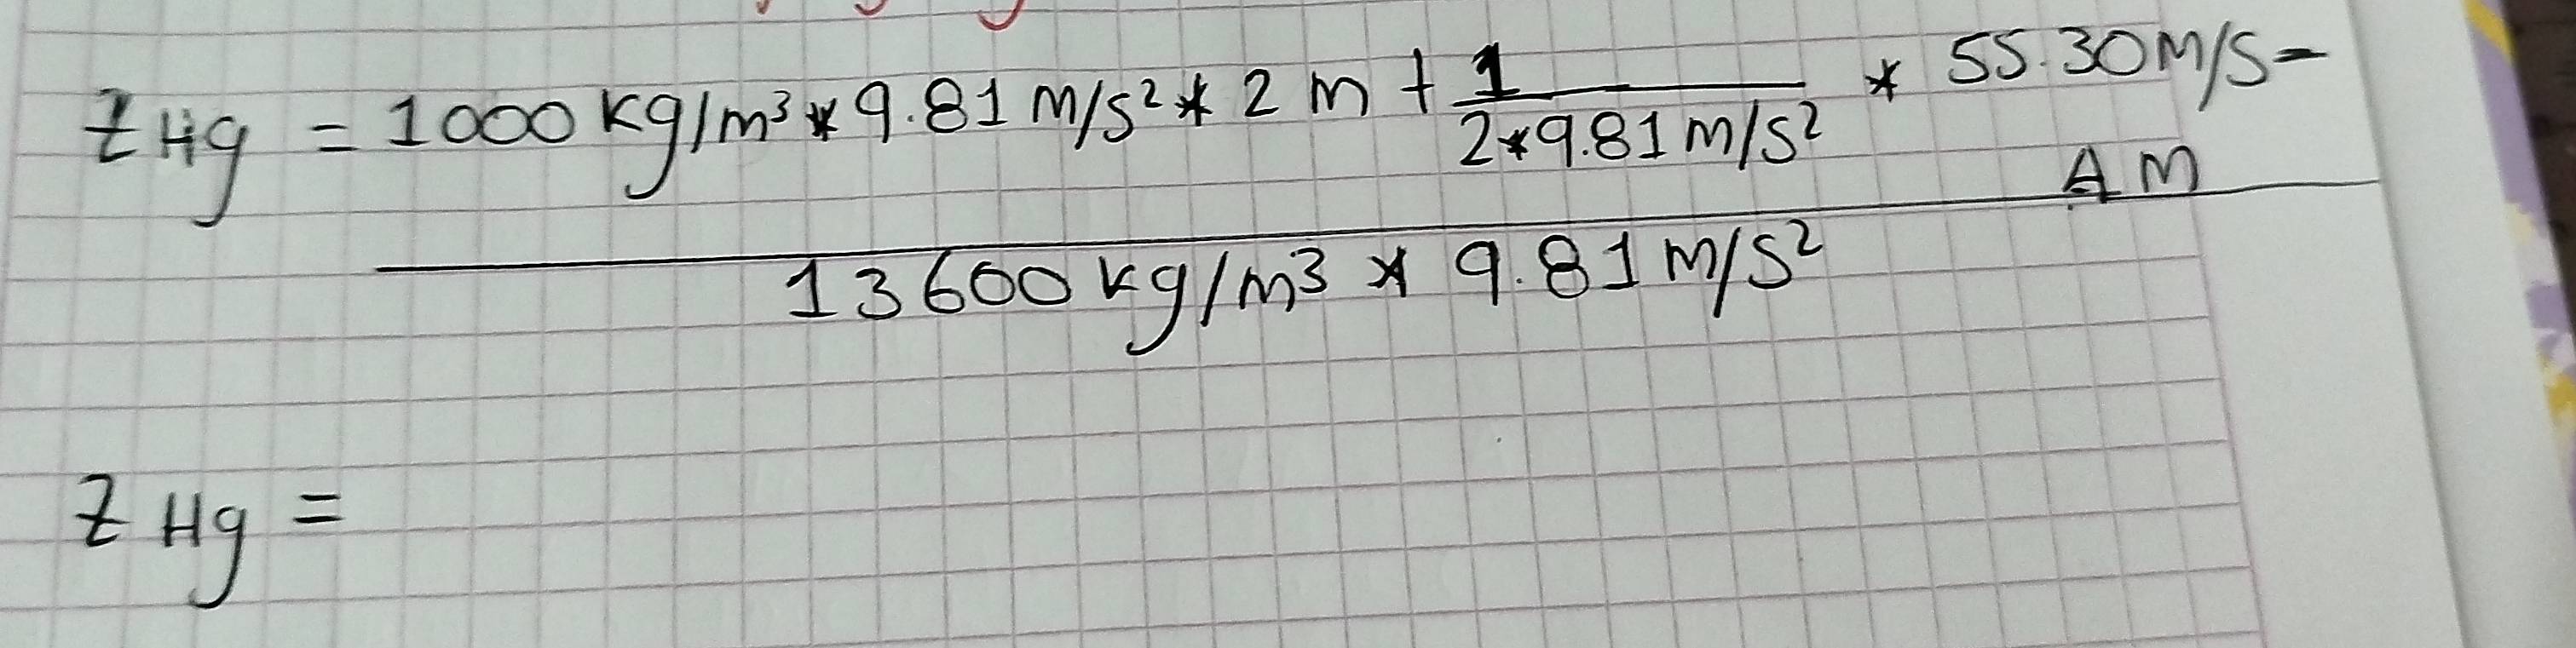 Z Hg = 1000 kg/m³ * 9.81 m/s² * 2 m + 1 * 55.30 M/S -
2*9.81 m/s²
A M
13600 kg/m³ * 9.81 m/s²
Z Hg =